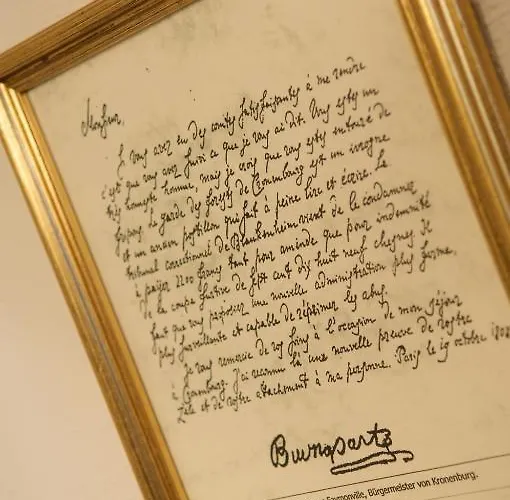 Monsieur,
Si vous avez eu des comités satisfaisantes à me rendre
c'est que vous avez suivi ce que je vous ai dit. Vous estes un
très honneste homme, mais je crois que vous estes entouré de
fripons. Le garde des forests de Cronembourg est un ivrogne
et un ancien postillon qui sait à peine lire et écrire. Le
tribunal correctionel de Blankenheim vient de le condamner
à payer 2200 francs tant pour amende que pour indemnité
de la coupe furtive de sept cent dix huit neuf chesnes. Je
faut que vous proposiez une nouvelle administration plus ferme,
plus surveillante et capable de réprimer les abus.
Je vous remercie de vos soins à l'occasion de mon séjour
à Cronembourg. J'ai reconnu là une nouvelle preuve de vostre
zèle et de vostre attachement à ma personne. Paris le 19 octobre
Buonaparte
Faymonville, Bürgermeister von Kronenburg.